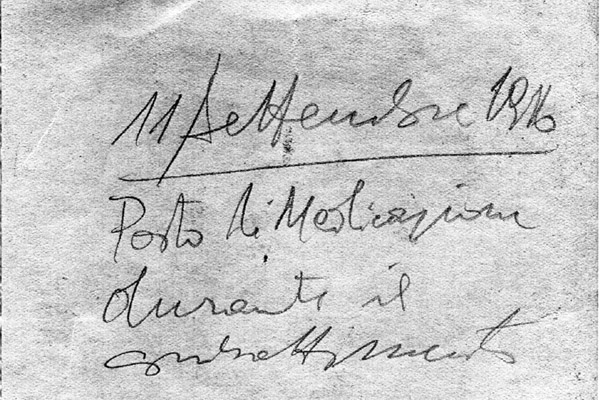 11 Settembre 1916
Posto di Medicazione
durante il
combattimento